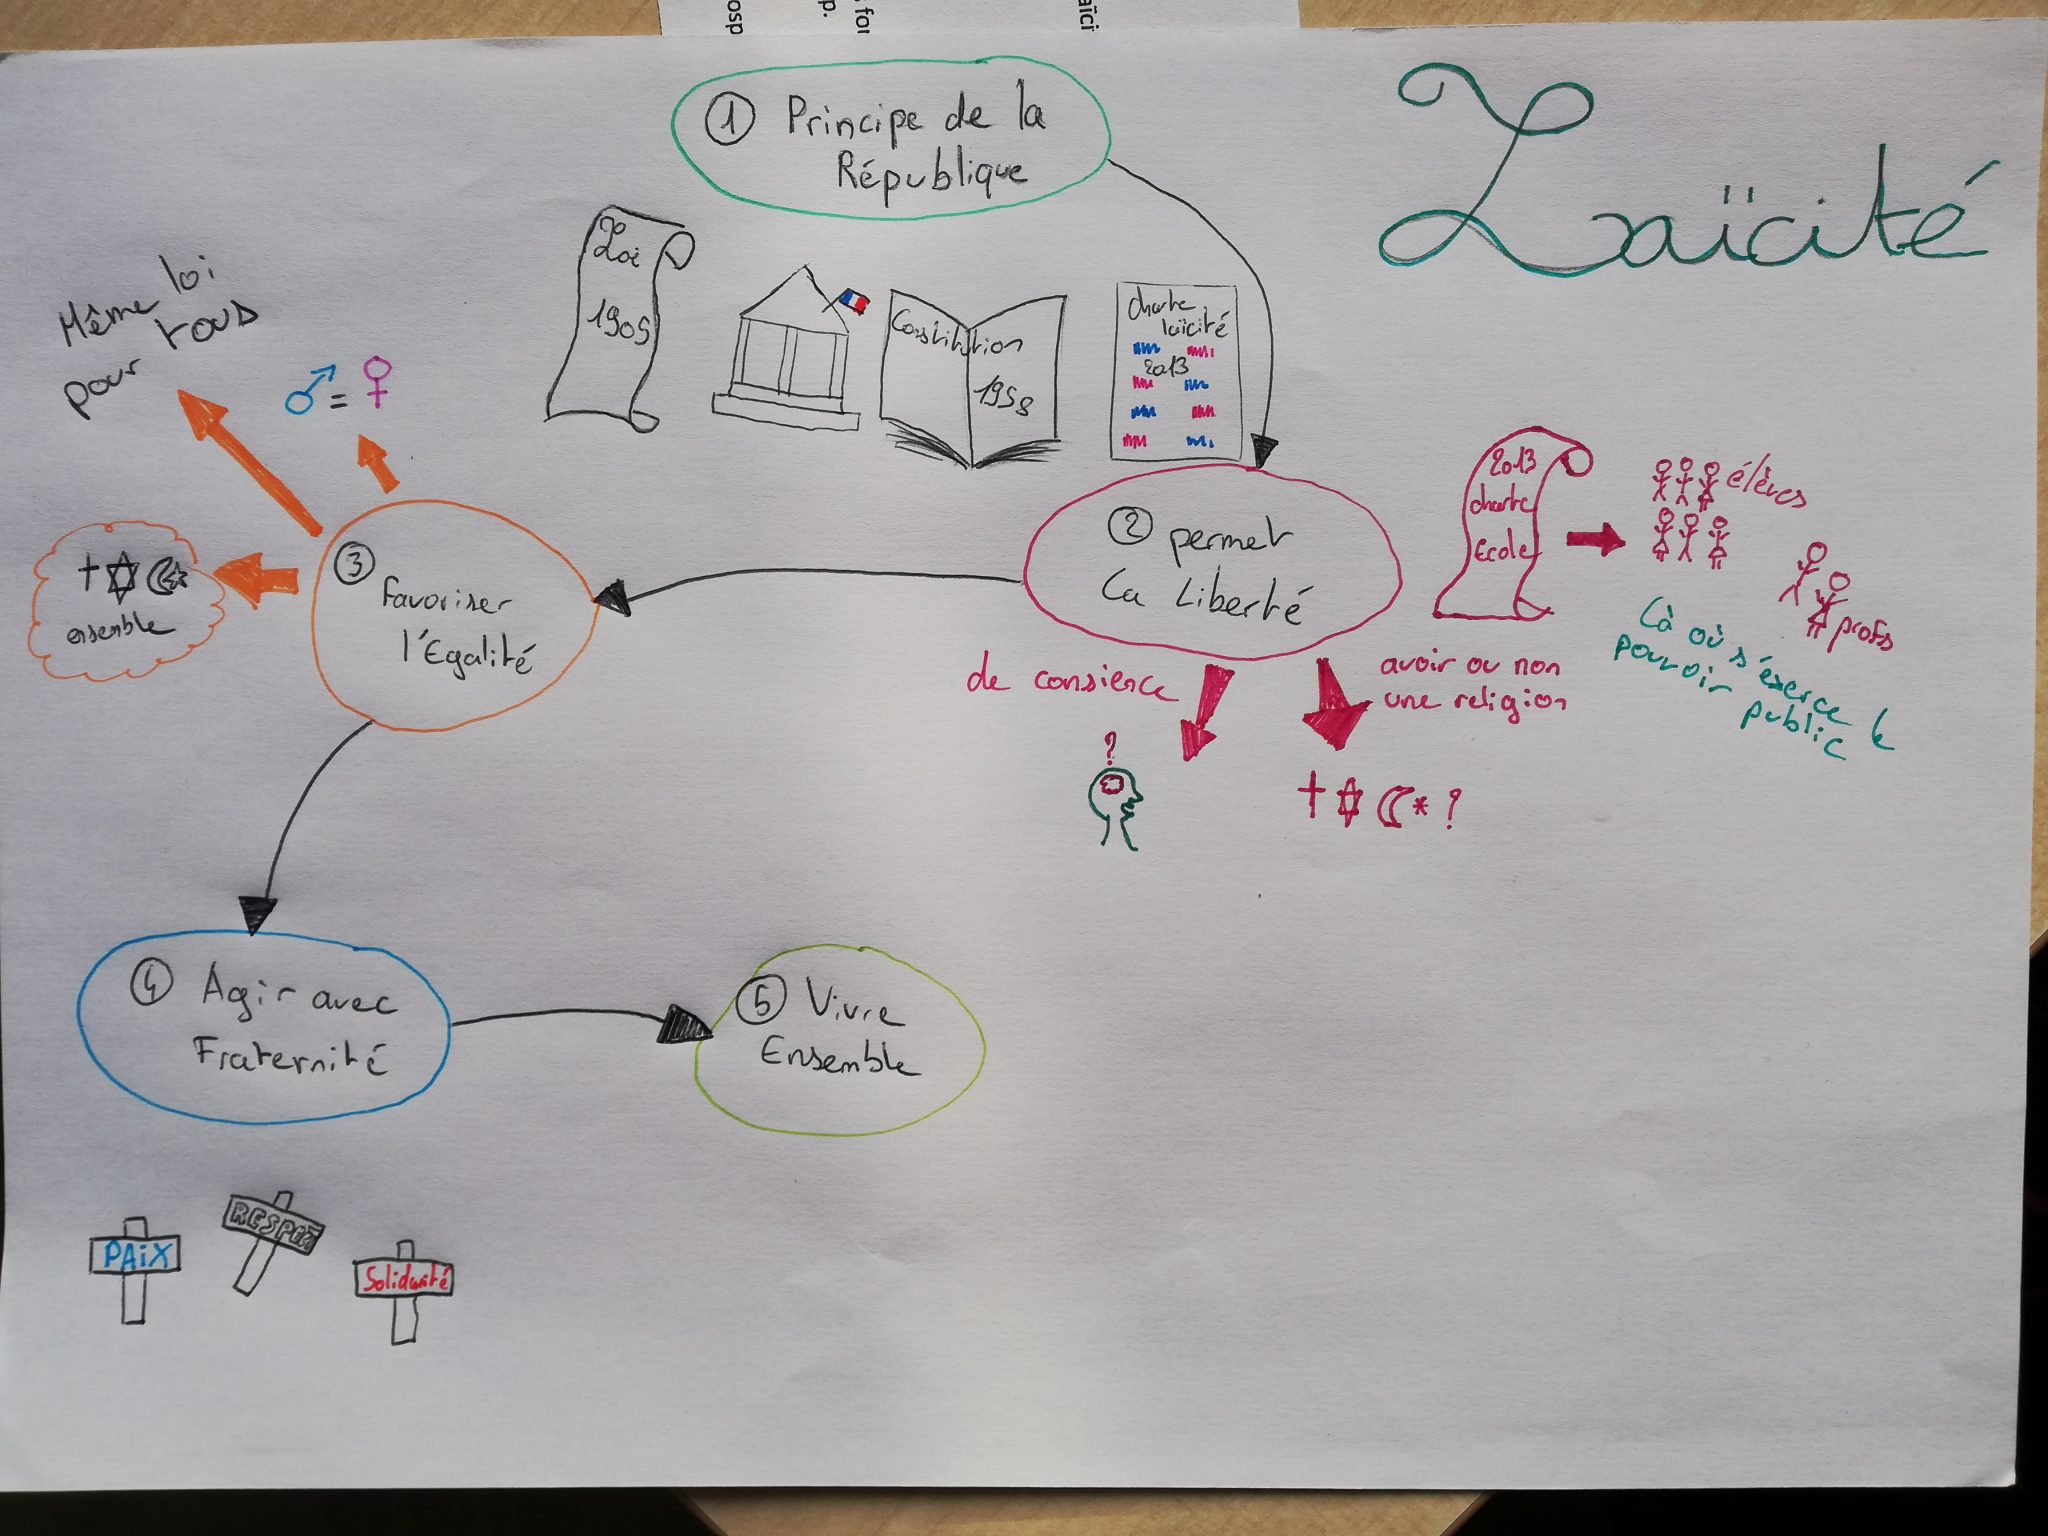 osp
p.
s for
aïci
Laïcité
① Principe de la
République
Loi
1905
Constitution
1958
charte
laïcité
2013
② permet
La Liberté
2013
charte
Ecole
élèves
profs
Là où s'éxerce le
pouvoir
public
de consience
?
avoir ou non
une religion
?
③
favoriser
l'Egalité
Même loi
pour tous
♂ = ♀
ensemble
④ Agir avec
Fraternité
PAiX
RESPECT
Solidarité
⑤ Vivre
Ensemble